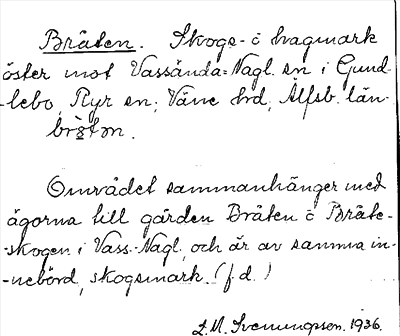 Bråten. Skogs- o hagmark
öster mot Vassända-Nagl. sn i Gund-
-lebo, Ryr sn; Väne hd, Älfsb. län.
bròtən.
Området sammanhänger med
ägorna till gården Bråten o Bråte-
-skogen i Vass.-Nagl, och är av samma in-
-nebörd, skogsmark. (f.d.)
L.M. Svenungsson. 1936.